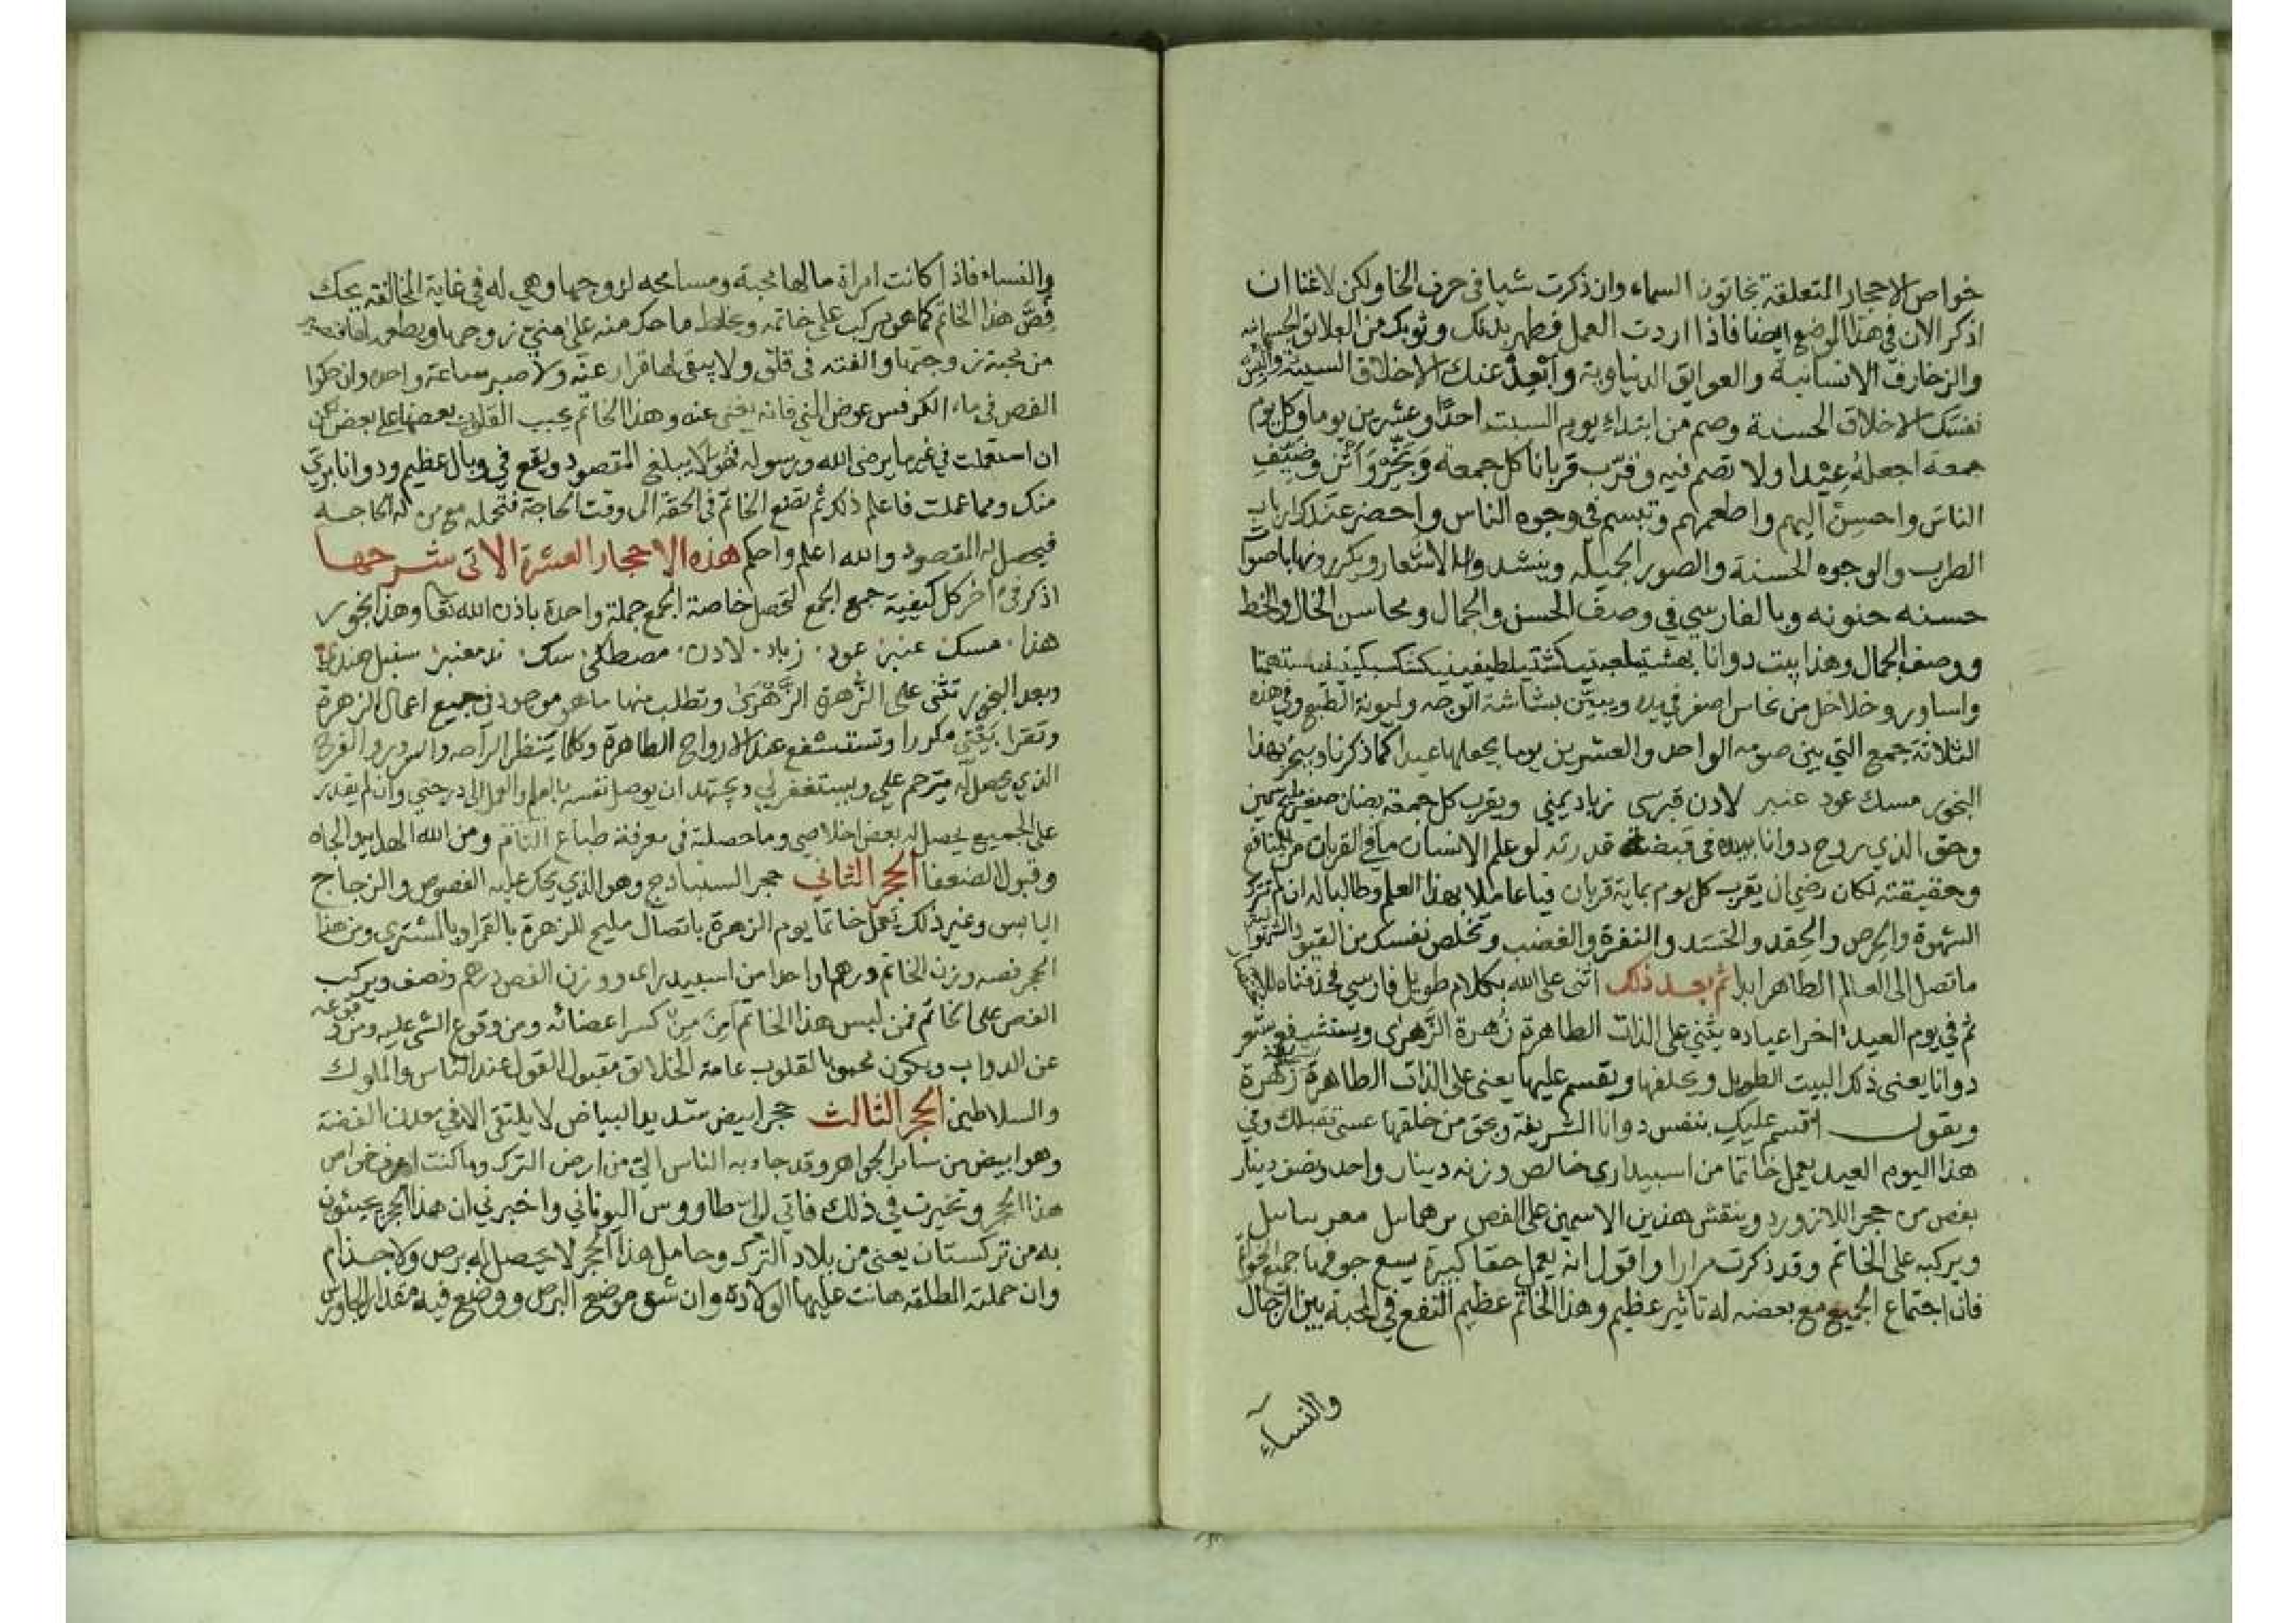 خواص الاحجار المتعلقة بخاتون السماء وان ذكرت شيا في حرف الخا ولكن لا غنا ان
اذكر الان في هذا الوضع ايضا فاذا اردت العمل فطهر بدنك وثوبك من العلايق الجسمانيه
والزخارف الانسانية والعوايق الدنياوية وابعد عنك الاخلاق السيئة والبس
نفسك الاخلاق الحسنة وصم من ابتداء يوم السبت احدا وعشرين يوما وكل يوم
جمعة اجعله عيدا ولا تصم فيه وقرب قربانا كل جمعة وبخر وضيف
الناس واحسن اليهم واطعمهم وتبسم في وجوه الناس واحضر عندك ارباب
الطرب والوجوه الحسنة والصور الجميلة وينشدوا الاشعار ويكررونها باصوات
حسنه حنونه وبالفارسي في وصف الحسن والجمال ومحاسن الخال والخط
ووصف الجمال وهذا بيت دوانا
واساور وخلاخل من نحاس اصفر في يده ويبين بشاشة الوجه وليونة الطبع وفي هذه
الثلاثة جمع التي بين صومه الواحد والعشرين يوما يجعلها عيدا كما ذكرنا ويبخر بهذا
البخور مسك عود عنبر لادن قبرسي زباد يمني ويقرب كل جمعة بضان صغير سمين
وحق الذي روح دوانا بيده في قبضة قدرته لو علم الانسان ما في القربان من المنافع
وحقيقته لكان رضي ان يقرب كل يوم بماية قربان فيا عاملا بهذا العلم وطالبا له ان لم تترك
الشهوة والحرص والحقد والحسد والنفرة والغضب وتخلص نفسك من القيود
ما تصل الى العالم الطاهر ابدا ثم بعد ذلك اثنى على الله بكلام طويل فارسي فحذفناه
ثم في يوم العيد اخر اعياده يثني على الذات الطاهرة زهرة الزهرى ويستشفع بشعر
دوانا يعني ذلك البيت الطويل ويحلفها ويقسم عليها يعني على الذات الطاهرة زهرة
ويقول اقسم عليك بنفس دوانا الشريفة وبحق من خلقها عسى تقبلك وفي
هذا اليوم العيد يعمل خاتما من اسبيداري خالص وزنه دينار واحد ونصف دينار
بفص من حجر اللازورد وينقش هذين الاسمين على الفص
ويركبه على الخاتم وقد ذكرت مرارا واقول انه يعمل حقا كبيرة يسع جوفها جميع الخواتم
فان اجتماع الجميع مع بعضه له تاثير عظيم وهذا الخاتم عظيم النفع في المحبة بين الرجال
والنساء
والنساء فاذا كانت امراة مالها محبة ومسامحه لزوجها وهي له في غاية المخالفة يحك
فص هذا الخاتم كما هو مركب على خاتمه ويخلط ما حك منه على مني زوجها ويطعمه لها
من محبة زوجها والفته في قلق ولا يبقى لها قرار عنه ولا صبر ساعة واحده وان حكوا
الفص في ماء الكرفس عوض المني فانه يغني عنه وهذا الخاتم يحبب القلوب بعضها على بعض لكن
ان استعملت في غير ما يرضي الله ورسوله فهو لا يبلغ المقصود ويقع في وبال عظيم ودوانا بري
منك ومما عملت فاعلم ذلك ثم تضع الخاتم في الحقة الى وقت الحاجة فتحمله مع من له الحاجه
فيحصل له المقصود والله اعلم واحكم هذه الاحجار العشرة الاتي شرحها
اذكر في اخر كل كيفية جمع الجمع لتحصل خاصة الجمع جملة واحدة باذن الله تعا وهذا بخور
هذا مسك عنبر عود زباد لادن مصطكى سك ند معنبر سنبل هندي
وبعد البخور تثني على الزهرة الزهرى وتطلب منها ما هو موجود في جميع اعمال الزهرة
وتقرا بيتي مكررا وتستشفع عند الارواح الطاهرة وكلما ينظر الراحه والسرور والفرح
الذي يحصل له يترحم علي ويستغفر لي ويجتهد ان يوصل نفسه بالعلم والعمل الى درجتي وان لم يقدر
على الجميع يحصل له بعض اخلاصي وما حصلته في معرفة طباع العالم ومن الله الهداية والجاه
وقبول الضعفا الحجر الثاني حجر السنبادج وهو الذي يحك عليه الفصوص والزجاج
اليابس وغير ذلك يعمل خاتما يوم الزهرة باتصال مليح للزهرة بالقمر او بالمشتري ومن هذا
الحجر فصه وزن الخاتم درهما واحدا من اسبيدراى ووزن الفص درهم ونصف ويركب
الفص على الخاتم فمن لبس هذا الخاتم امن من كسر اعضائه ومن وقوع الشي عليه ومن وقوعه
عن الدواب ويكون محبوبا لقلوب عامة الخلائق مقبول القول عند الناس والملوك
والسلاطين الحجر الثالث حجر ابيض شديد البياض لا يلتقى الا في معدن الفضة
وهو ابيض من ساير الجواهر وقد جاو به الناس الي من ارض الترك وما كنت اعرف خواص
هذا الحجر وتحيرت في ذلك فاتي لواسطاووس اليوناني واخبرني ان هذا الحجر يجيئون
به من تركستان يعني من بلاد الترك وحامل هذا الحجر لا يحصل له برص ولا جذام
وان حملته الطلقه هانت عليها الولادة وان شق موضع البرص ووضع فيه مقدار الجاورس